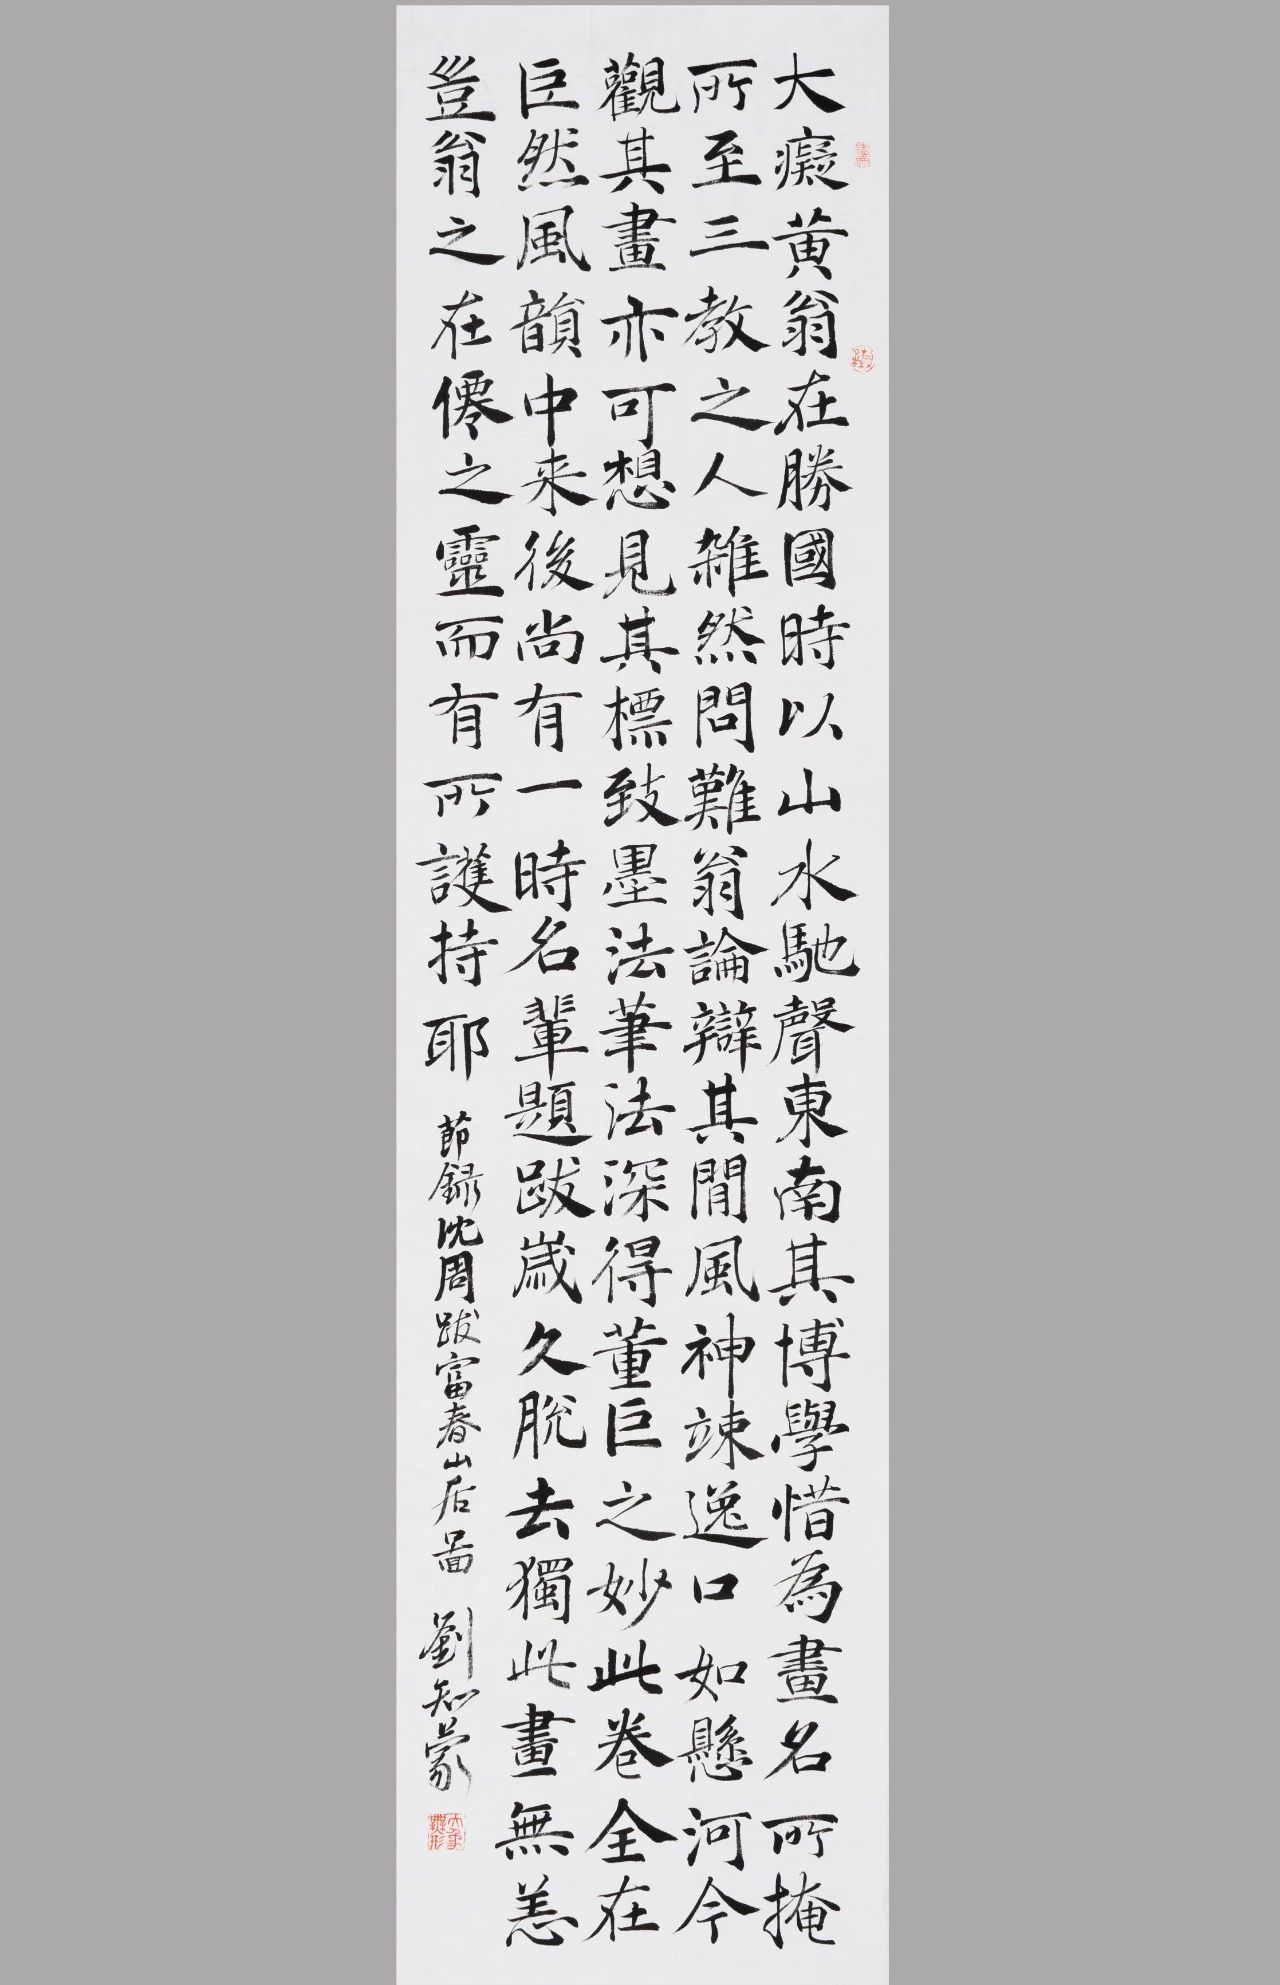 大癡黄翁在勝國時以山水馳聲東南其博學惜為畫名所掩
所至三教之人雜然問難翁論辯其間風神竦逸口如懸河今
觀其畫亦可想見其標致墨法筆法深得董巨之妙此卷全在
巨然風韻中来後尚有一時名輩題跋歲久脫去獨此畫無恙
豈翁之在僊之靈而有所護持耶
節録沈周跋富春山居啚
劉知蒙
大象無形